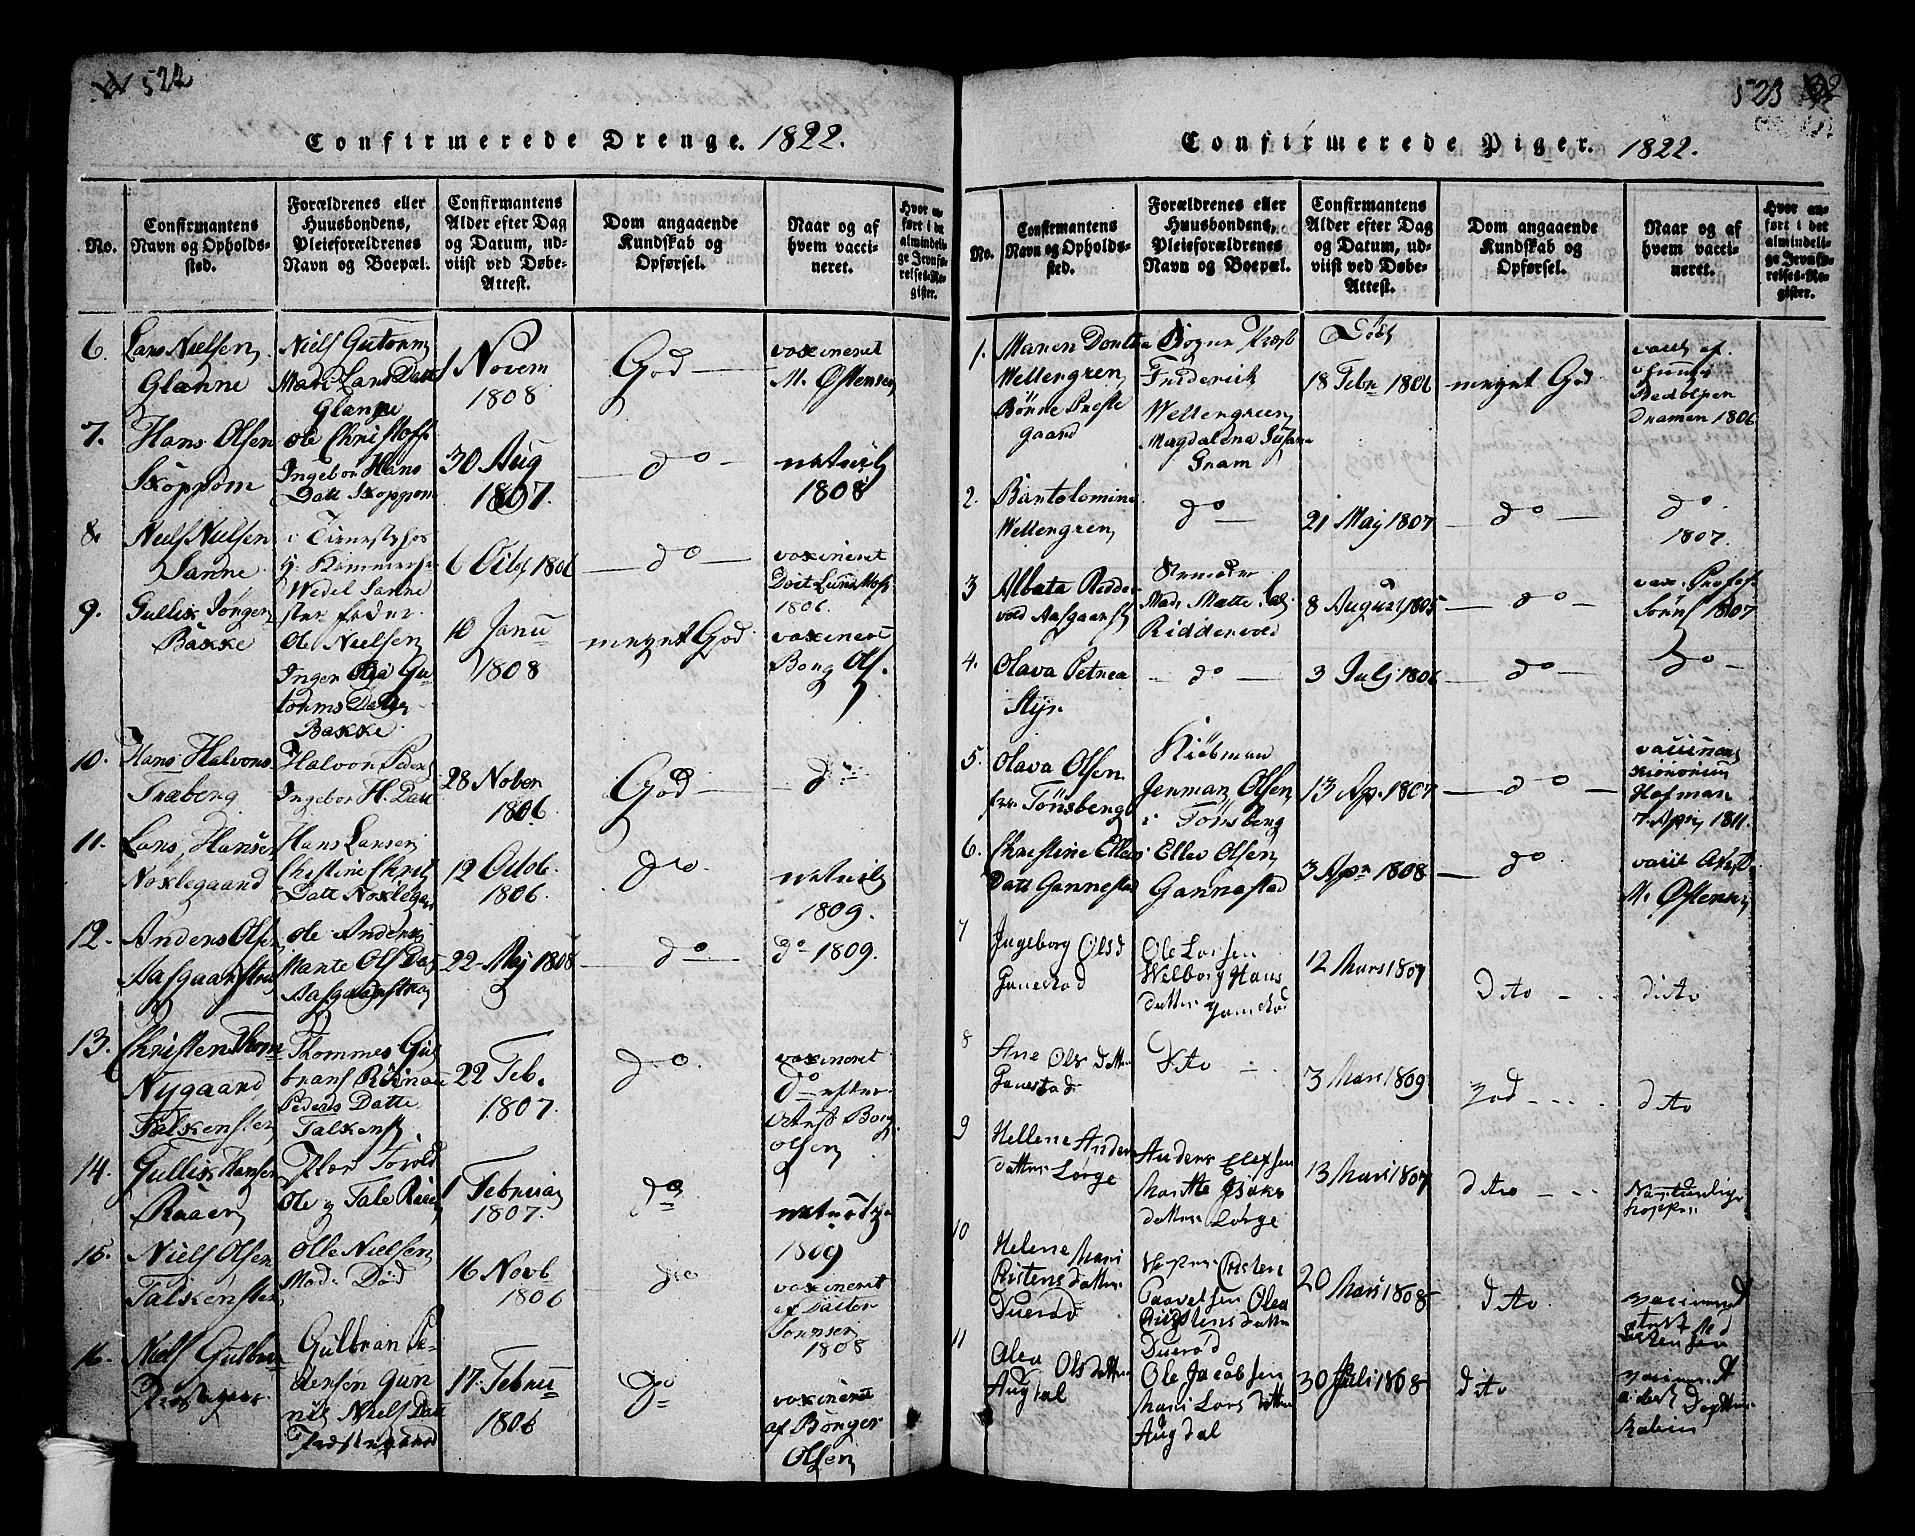 522
Confirmerede Drenge. 1822.
No.
Confirmantens
Navn og Opholds-
sted.
Forældrenes eller
Huusbondens,
Pleieforældrenes
Navn og Boepæl.
Confirmantens
Alder efter Dag
og Datum, ud-
viist ved Døbe-
Attest.
Dom angaaende
Kundskab og
Opførsel.
Naar og af
hvem vacci-
neret.
Hvor an-
ført i det
almindeli-
ge Jevnfø-
relses-Re-
gister.
6.
Lars Nielsen
Glænne
Niels Gutorm
Mari Lars Datt
Glænne
1 Novem
1808
God
vaxineret
M. Østensen
7.
Hans Olsen
Skoppom
Ole Christoff
Ingebor Hans
Datt Skoppom
30 Aug
1807.
do
naturl
1808
8.
Niels Nielsen
Sanne
i Tieneste hos
Wedel Sanne
6 Octb 1806
do
vaxineret
1806.
9.
Gullix Jörgen
Bakke
Ole Nielsen
Inger Gu-
torms Datter
Bakke
10 Janu
1808
meget God
vaxineret
Borg Ols.
10.
Hans Halvors
Traberg
Halvor Peders
Ingebor H. Datt
28 Nober
1806.
God
do
11.
Lars Hansen
Noxlegaard
Hans Larsen
Christine Christ
Datt Noxlegar
12 Octob.
1806.
do
naturl
1809.
12.
Anders Olsen
Aasgaarstran
Ole Anders
Marte Ols Dat
Aasgaarstran
22 Mij 1808
do
do 1809.
13.
Christen Thom
Nygaard
Falkensten
Thommes Gul
Peders Datte
Falkenst
22 Feb.
1807.
do
vaxineret
do efter
Borg
Olsen
14.
Gullix Hansen
Raaen
Ole og Tale Raaen
1 Februar
1807.
do
naturlig
1809
15.
Niels Olsen
Falkensten
Olle Nielsen
Mod. Död
16 Novb
1806
do
vaxineret
af Docter
Sörnsen
1808
16.
Niels Gulbran
Gulbran Pe-
dersen Gun-
nil Niels Datt
Præstegaard
17 Febru
1806
do
vaxineret
af Börger
Olsen
523
Confirmerede Piger. 1822.
No.
Confirmantens
Navn og Opholds-
sted.
Forældrenes eller
Huusbondens,
Pleieforældrenes
Navn og Boepæl.
Confirmantens
Alder efter Dag
og Datum, ud-
viist ved Døbe-
Attest.
Dom angaaende
Kundskab og
Opførsel.
Naar og af
hvem vacci-
neret.
Hvor an-
ført i det
almindeli-
ge Jevnfø-
relses-Re-
gister.
1.
Maren Dorthea
Weltengren
Börre Præste
gaard
Sogne Præst
Frederick
Weltengreen
Magdalena Susane
Gram
Födt
18 Febr 1806
meget God
vacc af
Dramen 1806
2.
Bartolomine
Weltengren
do
21 Maj 1807
do
do
1807.
3
Albeta Ridder
vold Aasgaarst
Mad. Mette
Riddervold
8 August 1805
do
vax. Profess
Sörns 1807
4.
Olava Petrea
Styr.
do
3 Julj 1806
do
do
5.
Olava Olsen
fra Tönsberg
Kiöbmand
Jenman Olsen
i Tönsberg
13 Ap. 1807
do
Hofman
7 Apri 1811.
6.
Christine Ellevs
Datt Gannestad
Ellev Olsen
Gannestad
3 Apr 1808
do
vacit
M. Østensen
7
Ingeborg Olsd
Gannestad
Ole Larsen
Welborg Hans
datter Gannestad
12 Mars 1807
dito
dito
8
Ane Ols datter
Gannestad
dito
3 Mars 1809
God
dito
9
Hellene Ander
datter Lørge
Anders Elefsen
Marthe Isaks
datter Lørge
13 Mars 1807
dito
Naturlige
kopper
10
Helene Mari
Cristens datter
Duerød
Cristen
Olea
Cristens datter
Duerød
20 Mars 1808
dito
vacineret
attest Md
Østensen
11
Olea Ols datter
Augdal
Ole Jacobsen
Mari Lars datter
Augdal
30 Juli 1808
dito
vacineret